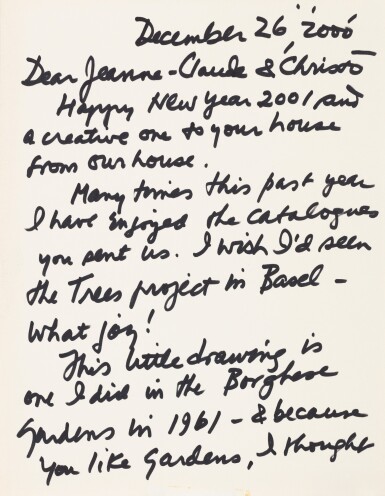 December 26 "2000"
Dear Jeanne-Claude & Christo
Happy New Year 2001 and
a creative one to your house
from our house.
Many times this past year
I have enjoyed the catalogues
you sent us. I wish I'd seen
the Trees project in Basel -
What joy!
This little drawing is
one I did in the Borghese
Gardens in 1961 - & because
you like gardens, I thought